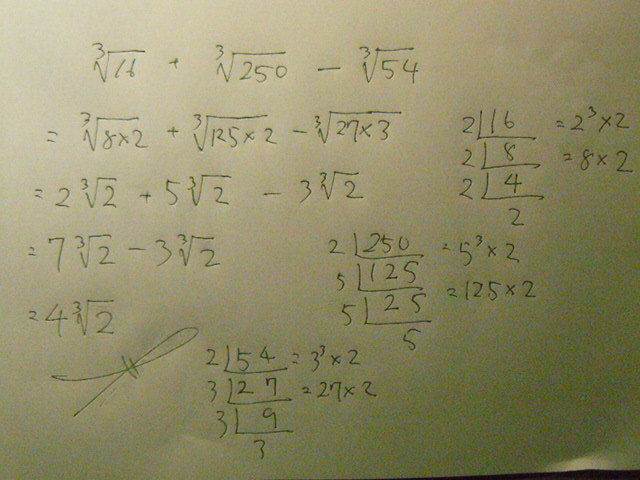 ∛16 + ∛250 − ∛54
= ∛8×2 + ∛125×2 − ∛27×3
= 2∛2 + 5∛2 − 3∛2
= 7∛2 − 3∛2
= 4∛2
2 | 16 = 2³×2
2 | 8 = 8×2
2 | 4
2
2 | 250 = 5³×2
5 | 125 = 125×2
5 | 25
5
2 | 54 = 3³×2
3 | 27 = 27×2
3 | 9
3